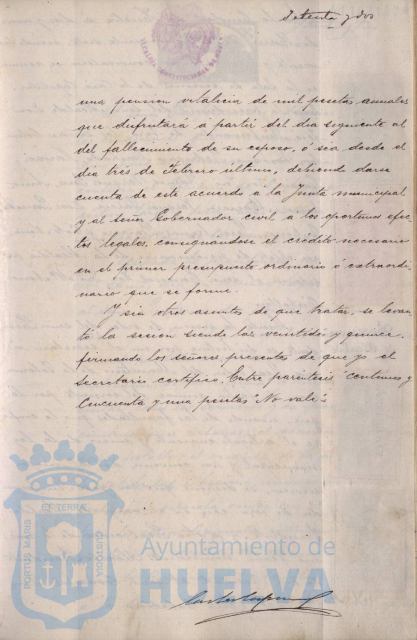 Setenta y dos
una pension vitalicia de mil pesetas anuales
que disfrutará a partir del dia siguiente al
del fallecimiento de su esposo, ó sea desde el
dia tres de Febrero último, debiendo darse
cuenta de este acuerdo á la Junta municipal
y al señor Gobernador civil a los oportunos efec
tos legales, consignandose el crédito necesario
en el primer presupuesto ordinario ó extraordi
nario que se forme.
Y sin otros asuntos de que tratar, se levan
tó la sesion siendo las veintidos y quince,
firmando los señores presentes de que yo el
secretario certifico. Entre parentesis "centimos y
Cincuenta y una pesetas" No vale
PORTUS MARIS
ET TERRAE
CUSTODIA
Ayuntamiento de
HUELVA